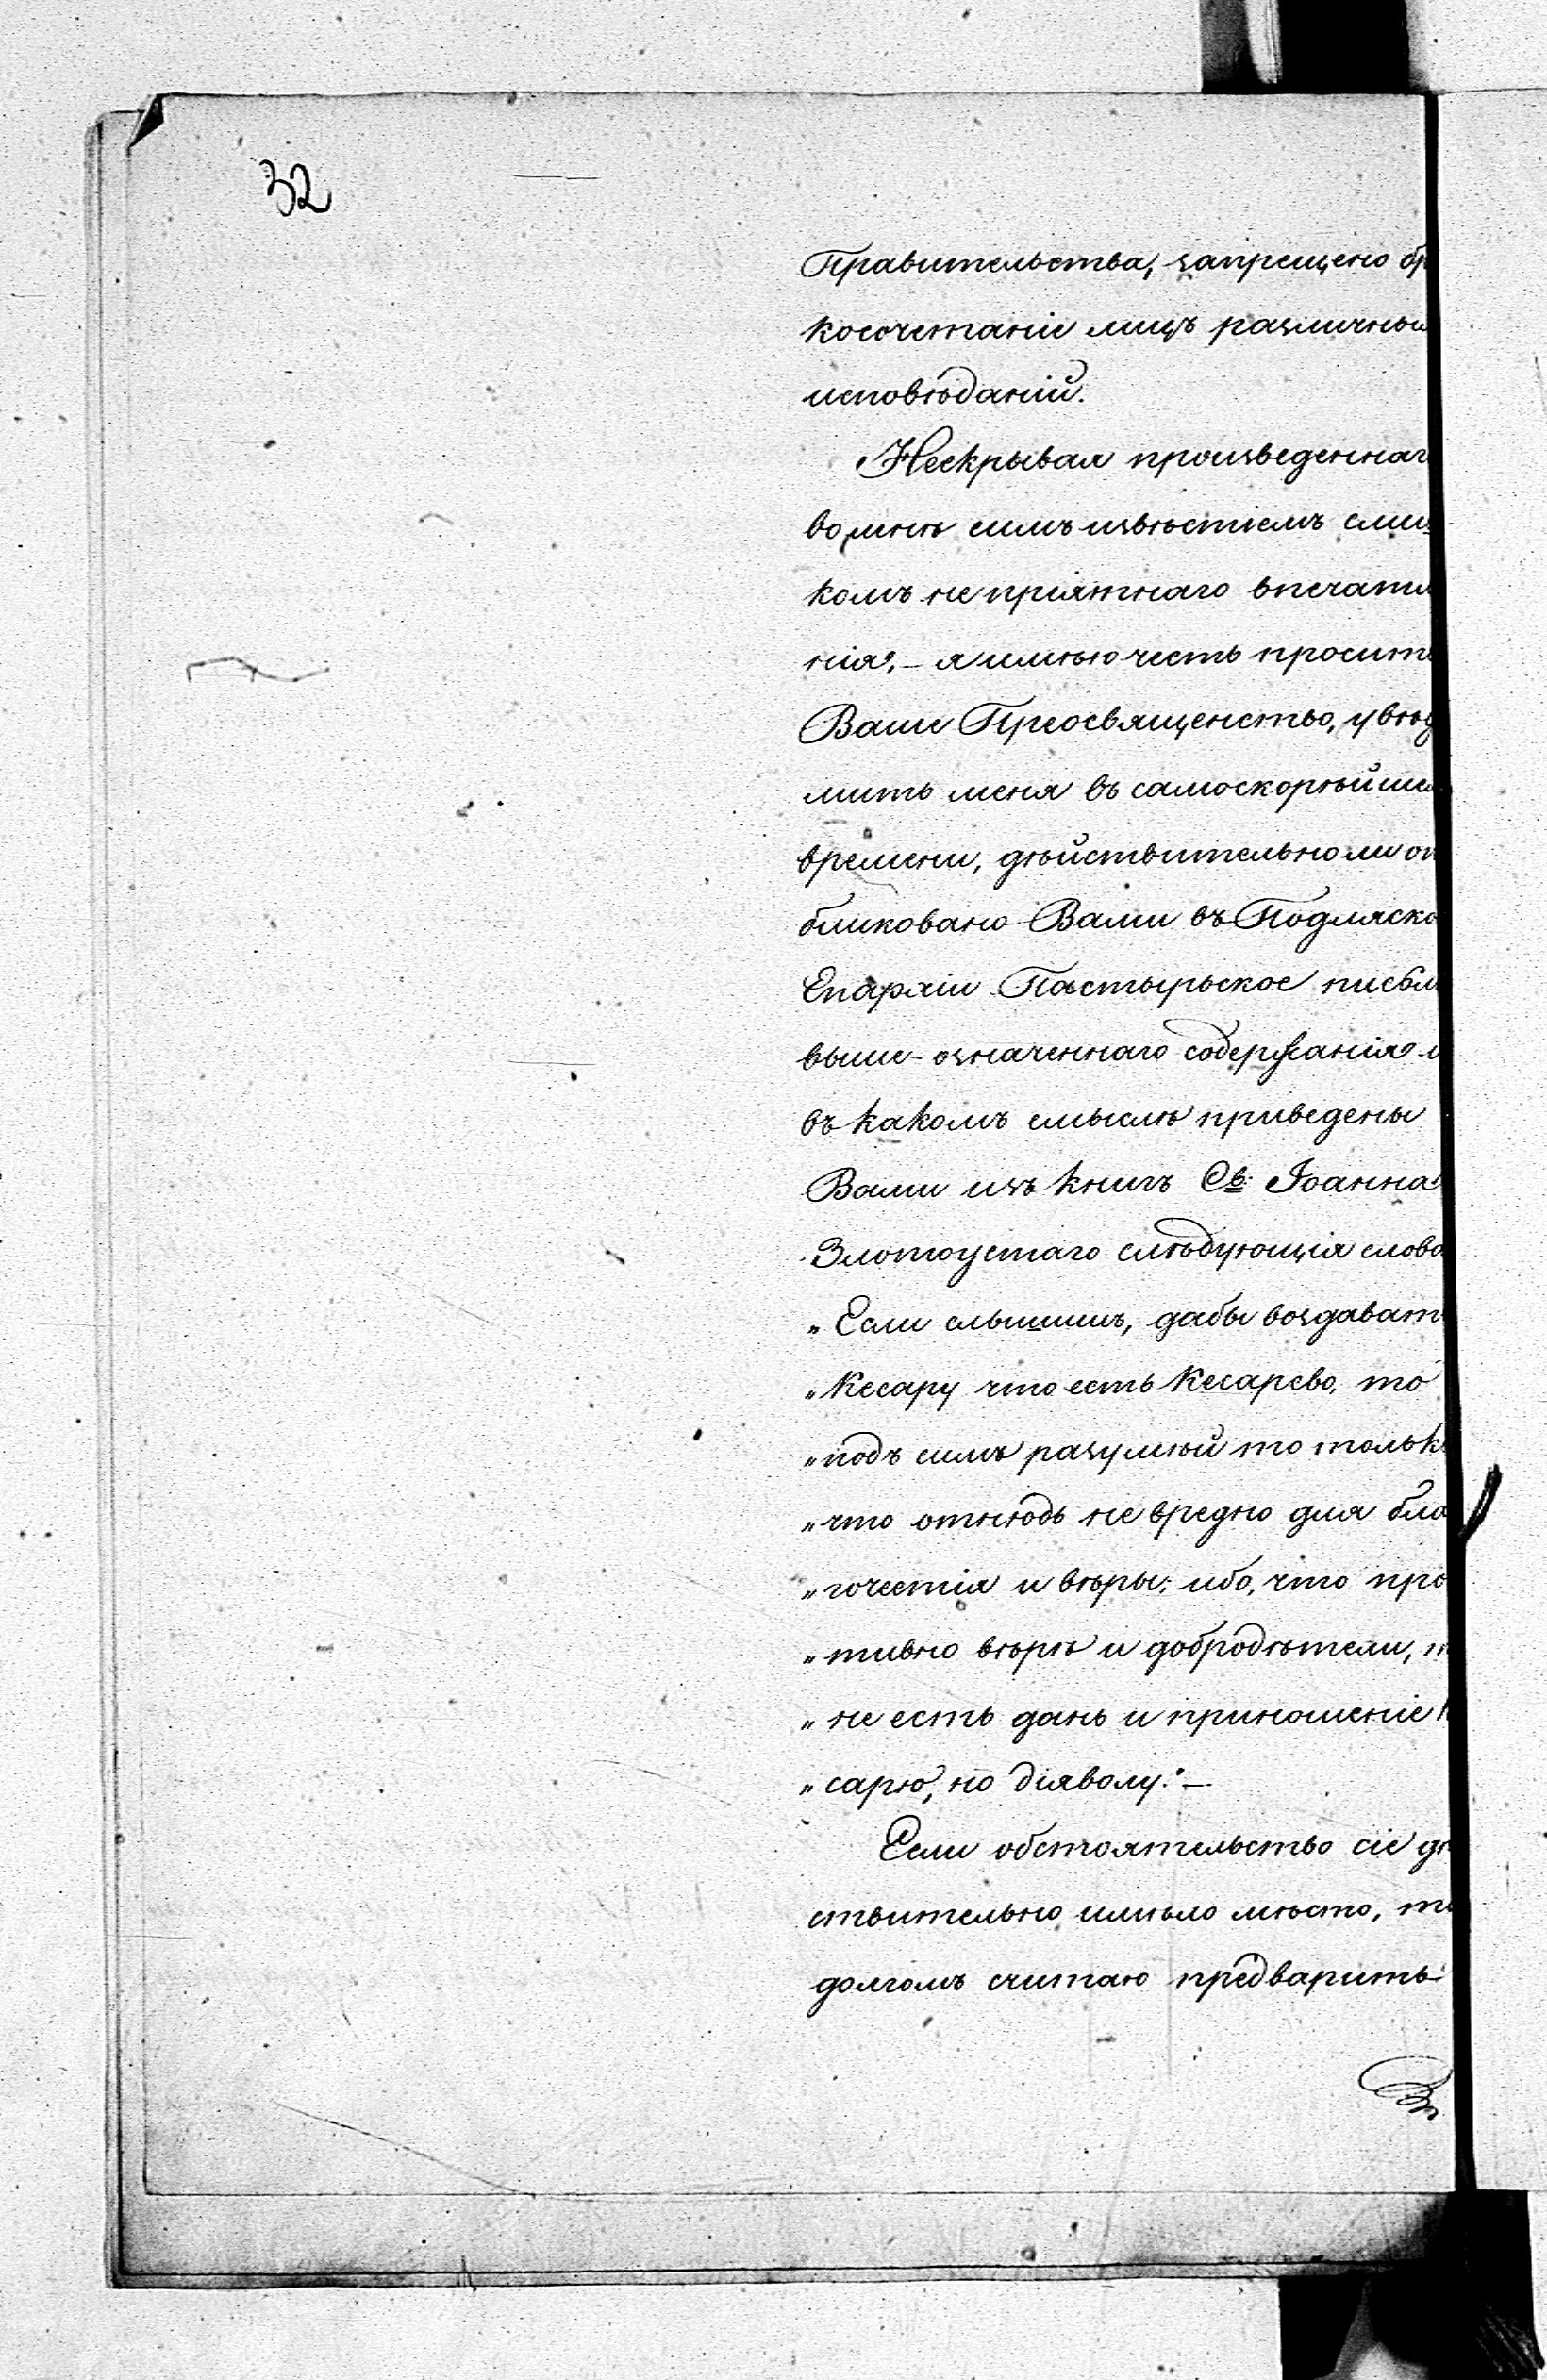 32
Правительства, запрещено бр
косочетаніе лицъ различны
исповѣданій.
Нескрывая произведеннаг
во мнѣ симъ извѣстіемъ слиш
комъ не пріятнаго впечатл
нія, – я имѣю честь просит
Ваше Преосвященство, увѣд
мить меня въ самоскорѣйше
времени, дѣйствительноли оп
бликовано Вами въ Подляско
Епархіи Пастырьское письм
выше-означеннаго содержанія и
въ какомъ смыслѣ приведены
Вами изъ книгъ Св. Іоанна
Злотоустаго слѣдующія слова
„Если слышишъ, дабы воздават
„Кесару что есть Кесарево, то
„подъ симъ разумѣй то тольк
„что отнюдь не вредно для бла
„гочестія и вѣры; ибо, что про
„тивно вѣрѣ и добродѣтели, т
„не есть дань и приношеніе К
„сарю, но діяволу." –
Если обстоятельство сіе дѣ
ствительно имѣло мѣсто, т
долгомъ считаю предварить